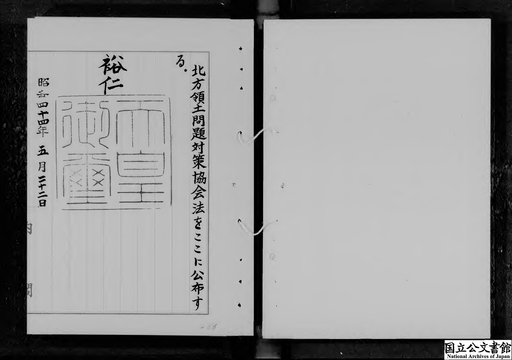 北方領土問題対策協会法をここに公布す
る。
裕仁
天皇
御璽
昭和四十四年五月二十二日
内
閣
国立公文書館
National Archives of Japan